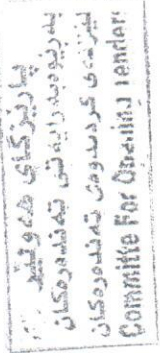 پارێزگای هەولێر
بەڕێوەبەرایەتی تەندەرەکان
لیژنەی کردنەوەی تەندەرەکان
Committe For Opening Tenders